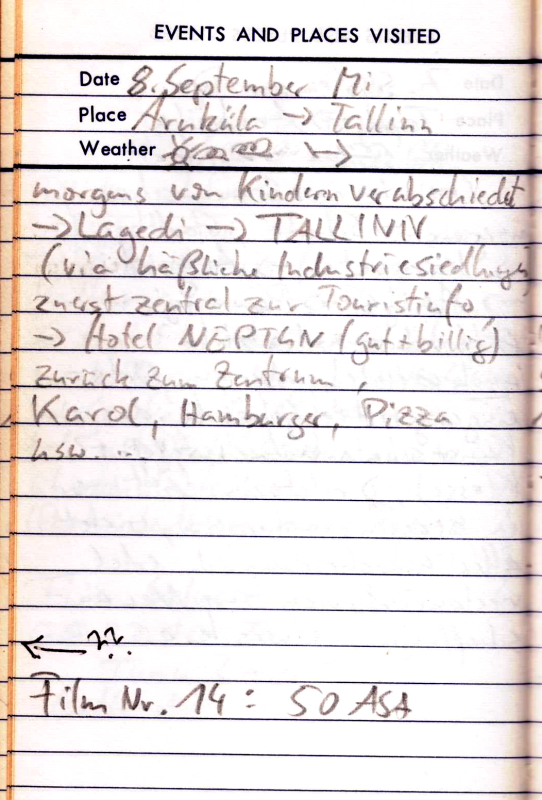 EVENTS AND PLACES VISITED
Date 8. September Mi.
Place Aruküla → Tallinn
Weather
morgens von Kindern verabschiedet
→ Lagedi → TALLINN
(via häßliche Industriesiedlungen)
zuerst zentral zur Touristinfo,
→ Hotel NEPTUN (gut + billig)
zurück zum Zentrum,
Karol, Hamburger, Pizza
usw. ...
← ??.
Film Nr. 14: 50 ASA